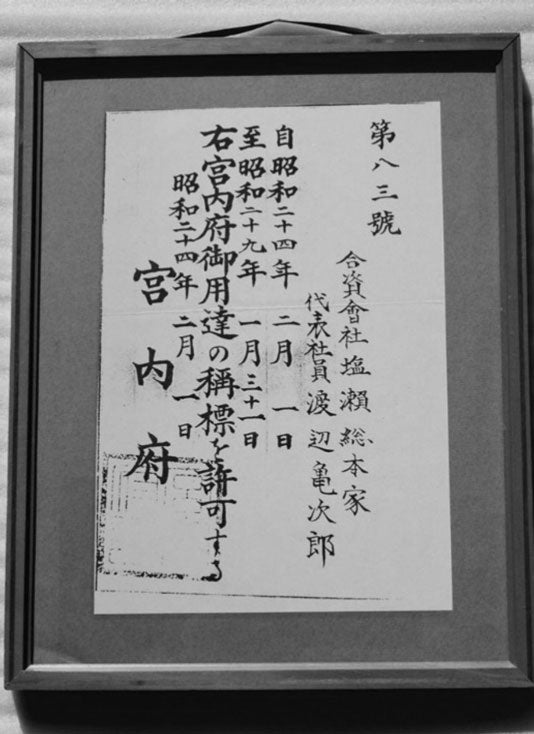 第八三號
合資會社塩瀬総本家
代表社員渡辺亀次郎
自昭和二十四年二月一日
至昭和二十九年一月三十一日
右宮内府御用達の稱標を許可する
昭和二十四年二月一日
宮内府